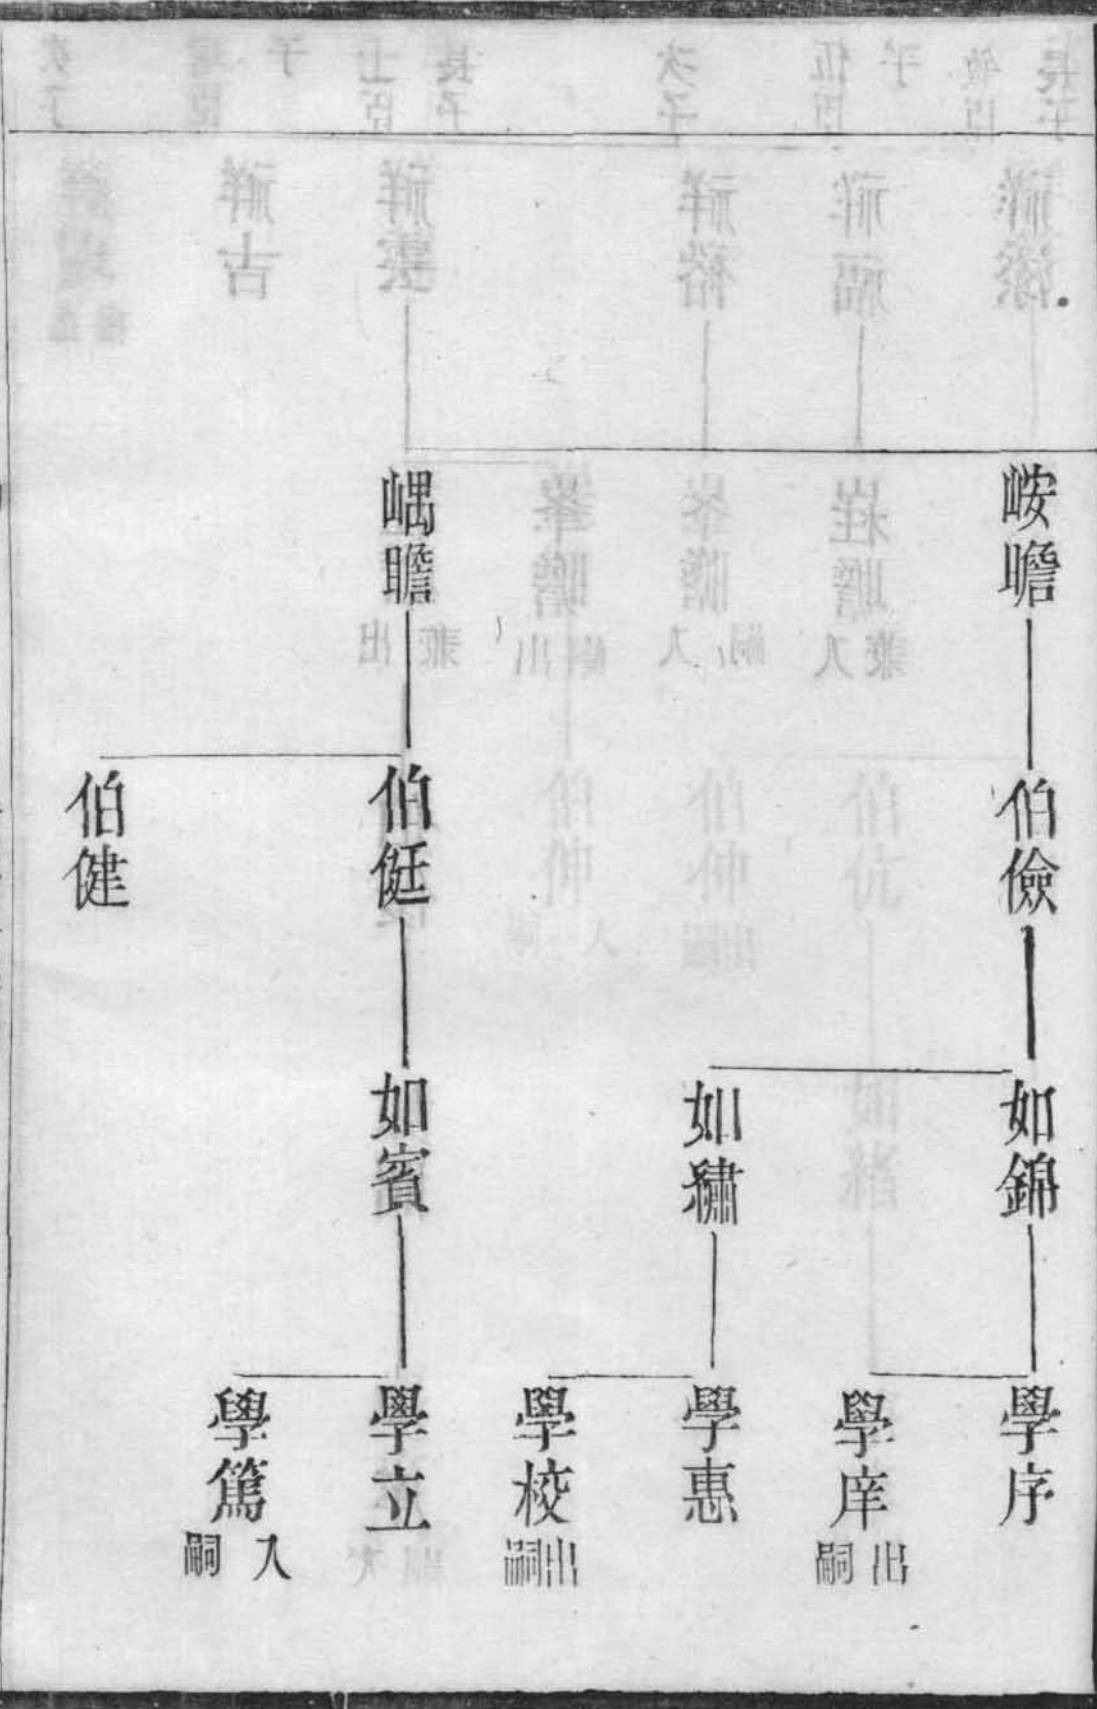 峖瞻
伯儉
如錦
學序
學庠
出嗣
如繡
學惠
學校
出嗣
嵎瞻
伯侹
如賓
學立
學篤
入嗣
伯健